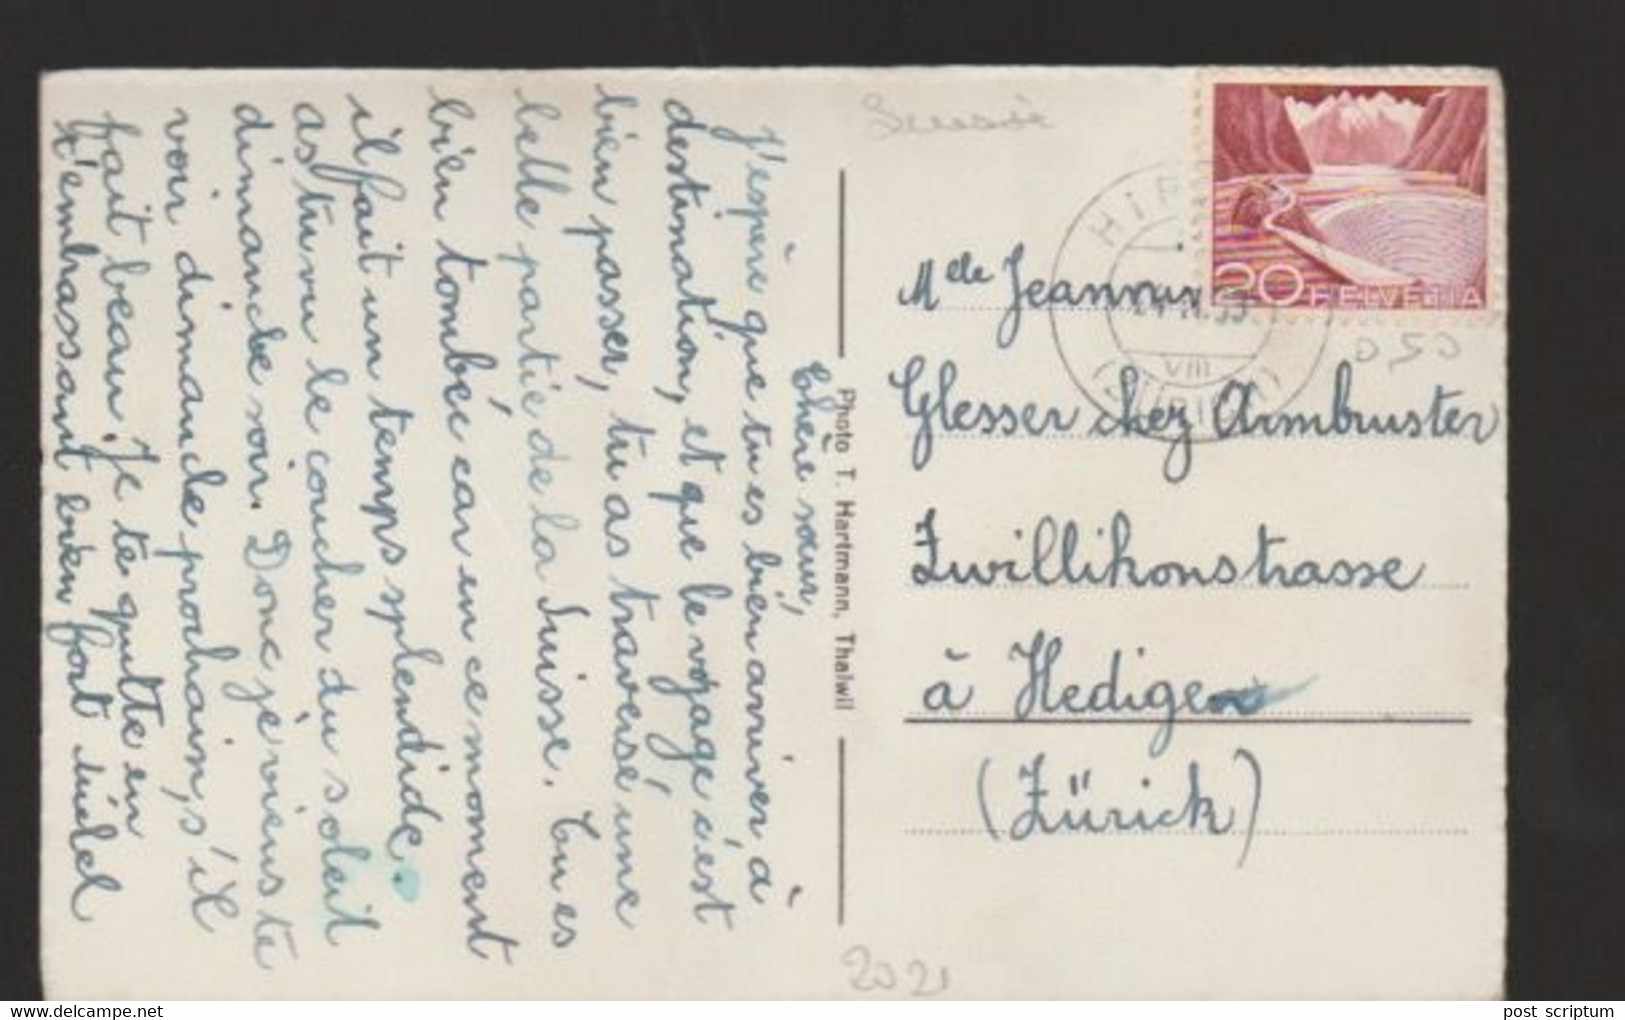 Chère sœur,
J'espère que tu es bien arriver à
destination, et que le voyage c'est
bien passer, tu as traversé une
belle partie de la Suisse. Tu es
bien tombée car en ce moment
il fait un temps splendide.
as tu vu le coucher du soleil
dimanche soir. Donc je viens te
voir dimanche prochain, s'il
fait beau. Je te quitte en
t'embrassant bien fort
Photo T. Hartmann, Thalwil
Suisse
HELVETIA
20
(ZÜRICH)
VIII
0,50
Mlle
Glesser chez Armbruster
Zwillikonstrasse
à Hedigen
(Zürick)
2021
post scriptum